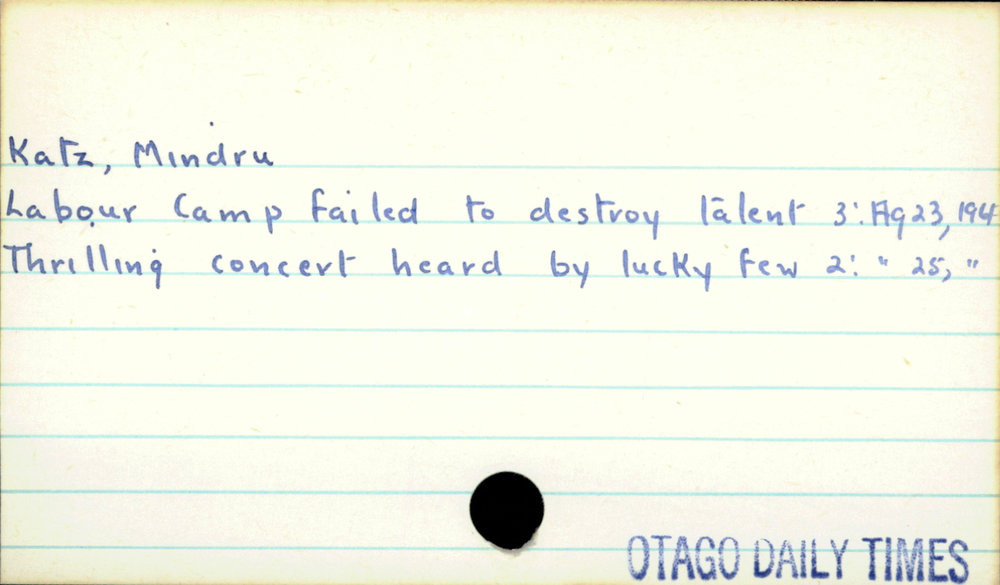 Katz, Mindru
Labour Camp failed to destroy talent 3: Ag 23, 194
Thrilling concert heard by lucky few 2: " 25, "
OTAGO DAILY TIMES